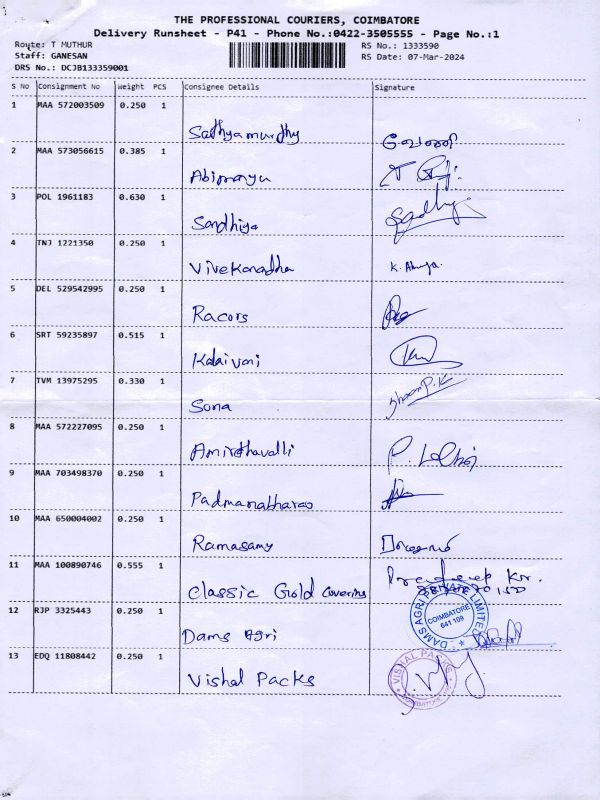 THE PROFESSIONAL COURIERS, COIMBATORE
Delivery Runsheet - P41 - Phone No.:0422-3505555 - Page No.:1
Route: T MUTHUR RS No.: 1333590
Staff: GANESAN RS Date: 07-Mar-2024
DRS No.: DCJB133359001
S No Consignment No Weight PCS Consignee Details Signature
1 MAA 572003509 0.250 1
Sathyamurthy
2 MAA 573056615 0.385 1
Abimanyu
3 POL 1961183 0.630 1
Sandhiya Sadhy
4 TNJ 1221350 0.250 1
Vivekanadha K. Abinya.
5 DEL 529542995 0.250 1
Racors
6 SRT 59235897 0.515 1
Kalaivani
7 TVM 13975295 0.330 1
Sona
8 MAA 572227095 0.250 1
Amirthavalli
9 MAA 703498370 0.250 1
Padmanabharao
10 MAA 650004002 0.250 1
Ramasamy
11 MAA 100890746 0.555 1
Classic Gold Coverins Pradeep Kr.
12 RJP 3325443 0.250 1
Dams Agri DAMS AGRI PRIVATE LIMITED
COIMBATORE
641 109
13 EDQ 11808442 0.250 1
Vishal Packs VISHAL PACKS